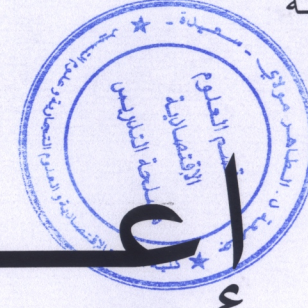 جامعة د. الطاهر مولاي - سعيدة -
كلية العلوم الاقتصادية والعلوم التجارية وعلوم التسيير
قسم العلوم
الإقتصادية
مصلحة التدريس